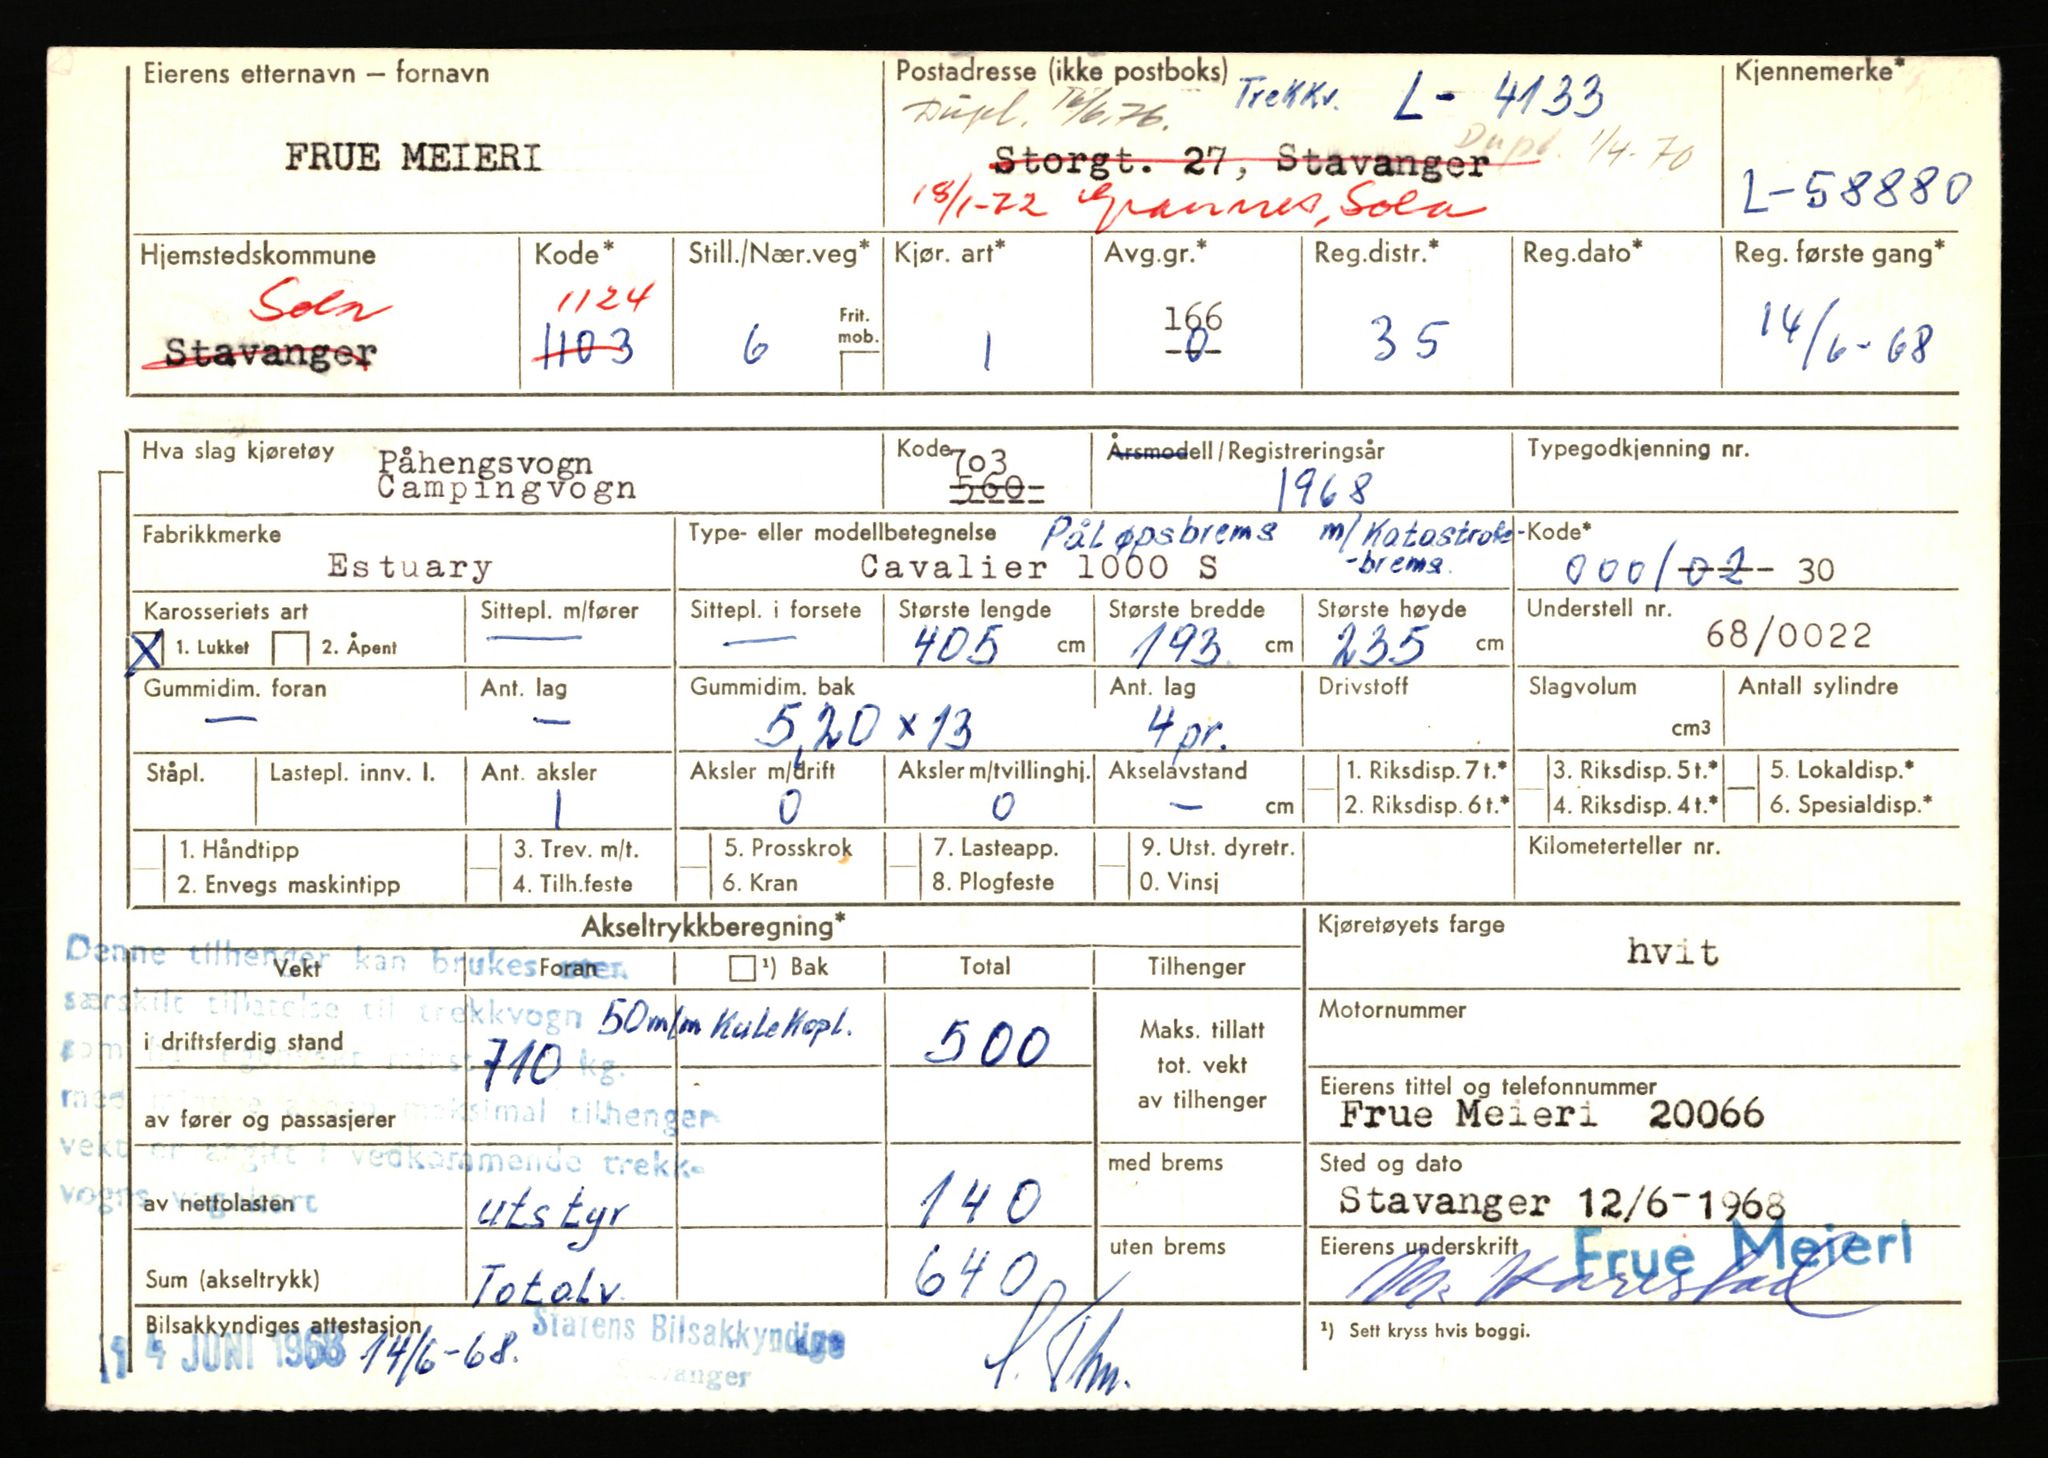 Eierens etternavn – fornavn
FRUE MEIERI
Postadresse (ikke postboks) Trekkv. L- 4133
Dupl. 16/6.76.
Dupl. 1/4-70
Storgt. 27, Stavanger
18/1-72 Grannes, Sola
Kjennemerke*
L-58880
Hjemstedskommune
Sola
Stavanger
Kode*
1124
1103
Still./Nær.veg*
6
Frit. mob.
Kjør. art*
1
Avg.gr.*
166
0
Reg.distr.*
35
Reg.dato*
Reg. første gang*
14/6-68
Hva slag kjøretøy
Påhengsvogn
Campingvogn
Kode
703
560
Årsmodell/Registreringsår
1968
Typegodkjenning nr.
Fabrikkmerke
Estuary
Type- eller modellbetegnelse Påløpsbrems m/Katastrofe-
-brems.
Cavalier 1000 S
Kode*
000/02 30
Karosseriets art
X 1. Lukket 2. Åpent
Sittepl. m/fører
—
Sittepl. i forsete
—
Største lengde
405 cm
Største bredde
193 cm
Største høyde
235 cm
Understell nr.
68/0022
Gummidim. foran
—
Ant. lag
—
Gummidim. bak
5,20 x 13
Ant. lag
4 pr.
Drivstoff
Slagvolum
cm3
Antall sylindre
Ståpl.
Lastepl. innv. l.
Ant. aksler
1
Aksler m/drift
0
Aksler m/tvillinghj.
0
Akselavstand
— cm
1. Riksdisp. 7 t.*
2. Riksdisp. 6 t.*
3. Riksdisp. 5 t.*
4. Riksdisp. 4 t.*
5. Lokaldisp.*
6. Spesialdisp.*
1. Håndtipp
2. Envegs maskintipp
3. Trev. m/t.
4. Tilh.feste
5. Prosskrok
6. Kran
7. Lasteapp.
8. Plogfeste
9. Utst. dyretr.
0. Vinsj
Kilometerteller nr.
Akseltrykkberegning*
Vekt Foran ¹) Bak Total Tilhenger
Denne tilhenger kan brukes uten
særskilt tillatelse til trekkvogn
kg.
maksimal tilhenger-
vekt er angitt i vedkommende trekk-
vogns vognkort
50 m/m Kulekopl.
i driftsferdig stand 710 500
av fører og passasjerer
av nettolasten utstyr 140
Sum (akseltrykk) Totalv. 640
Maks. tillatt
tot. vekt
av tilhenger
med brems
uten brems
Kjøretøyets farge
hvit
Motornummer
Eierens tittel og telefonnummer
Frue Meieri 20066
Sted og dato
Stavanger 12/6-1968
Eierens underskrift
Frue Meieri
¹) Sett kryss hvis boggi.
Bilsakkyndiges attestasjon
14 JUNI 1968 14/6-68.
Statens Bilsakkyndige
Stavanger